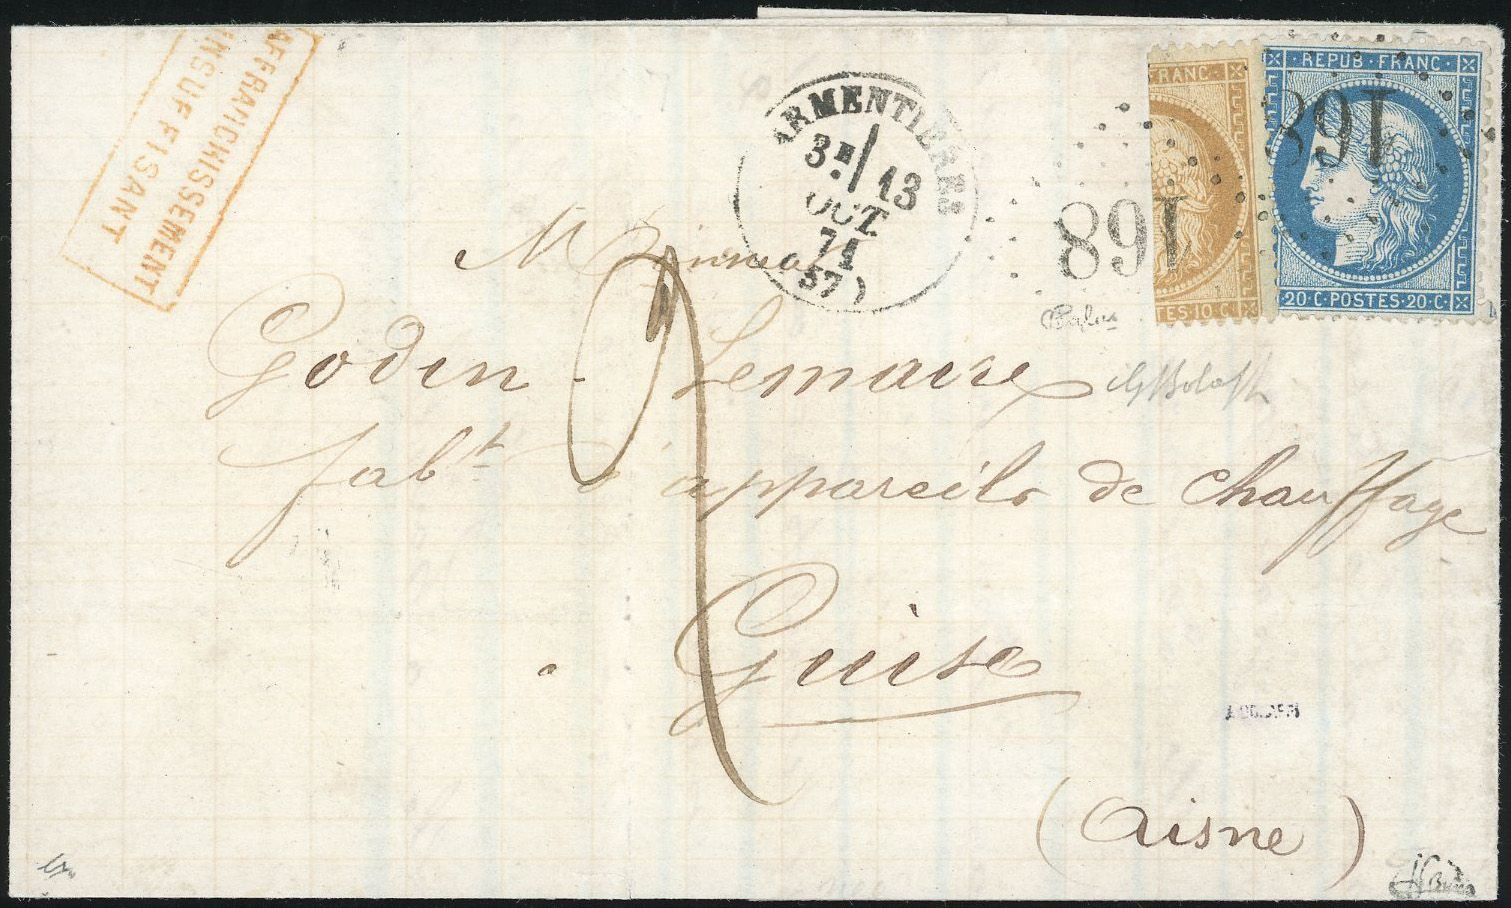 AFFRANCHISSEMENT
INSUFFISANT
ARMENTIERES
3E 13
OCT.
71
(57)
FRANC
TES·10·C·
REPUB·FRANC·
·20·C·POSTES·20·C·
168
168
M
Godin - Lemaire
fabt d'appareils de chauffage
Guise
(Aisne)